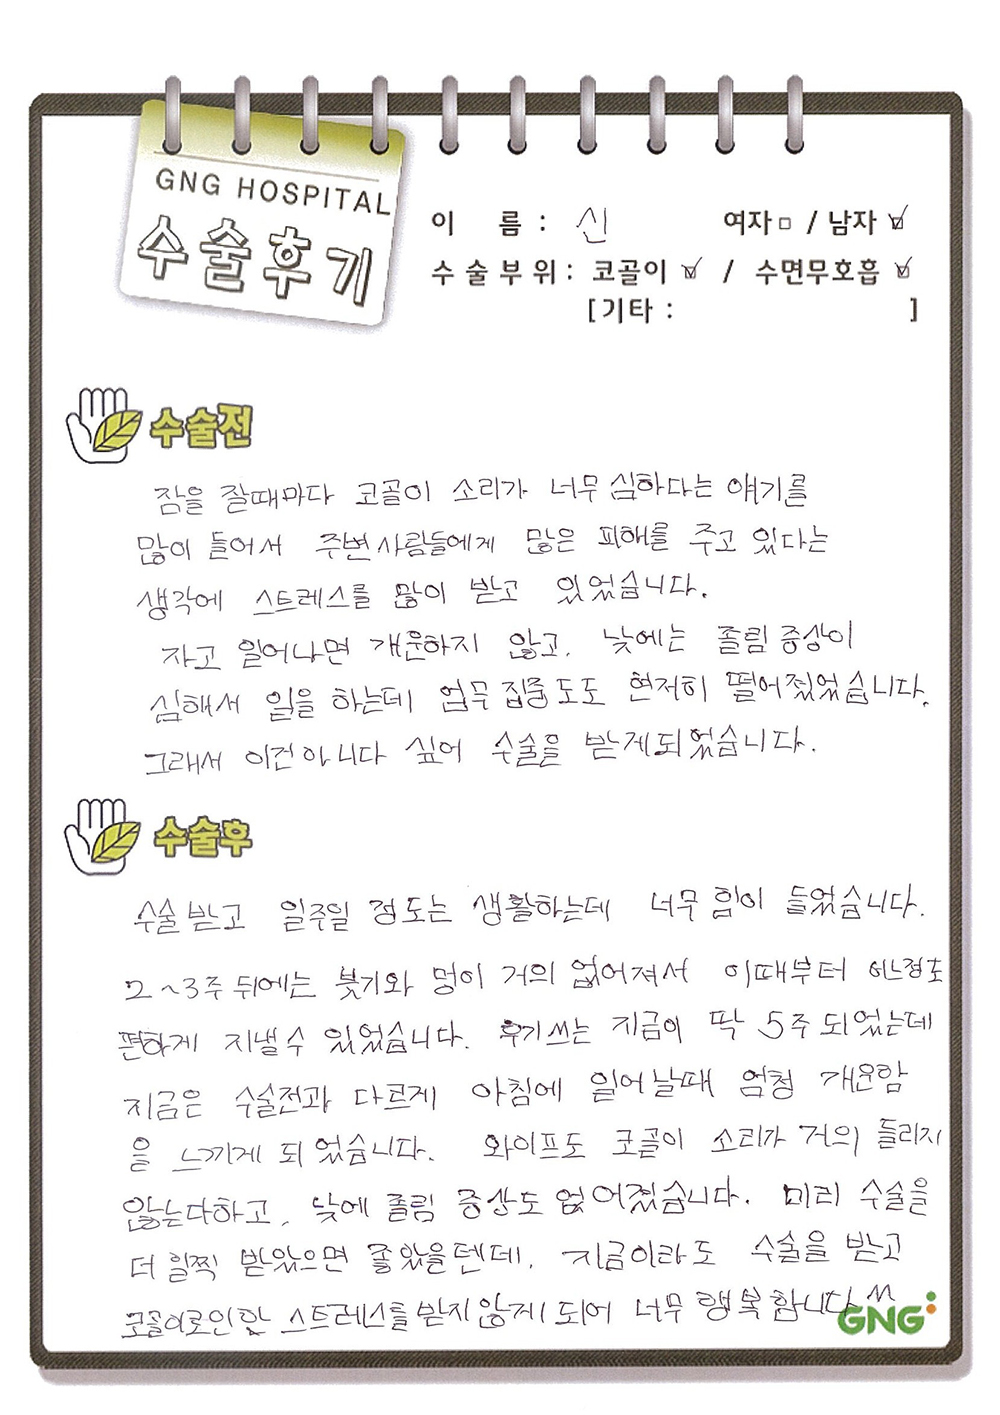 GNG HOSPITAL
수술후기
이 름 : 신 여자 □ / 남자 ☑
수술부위 : 코골이 ☑ / 수면무호흡 ☑
[기타 : ]
수술전
잠을 잘때마다 코골이 소리가 너무 심하다는 얘기를
많이 들어서 주변사람들에게 많은 피해를 주고 있다는
생각에 스트레스를 많이 받고 있었습니다.
자고 일어나면 개운하지 않고, 낮에는 졸림증상이
심해서 일을 하는데 업무 집중도도 현저히 떨어졌었습니다.
그래서 이건 아니다 싶어 수술을 받게되었습니다.
수술후
수술 받고 일주일 정도는 생활하는데 너무 힘이 들었습니다.
2~3주 뒤에는 붓기와 멍이 거의 없어져서 이때부터 어느정도
편하게 지낼 수 있었습니다. 후기쓰는 지금이 딱 5주 되었는데
지금은 수술전과 다르게 아침에 일어날때 엄청 개운함
을 느끼게 되었습니다. 와이프도 코골이 소리가 거의 들리지
않는다하고, 낮에 졸림 증상도 없어졌습니다. 미리 수술을
더 일찍 받았으면 좋았을텐데, 지금이라도 수술을 받고
코골이로인한 스트레스를 받지않게 되어 너무 행복합니다 ^^
GNG